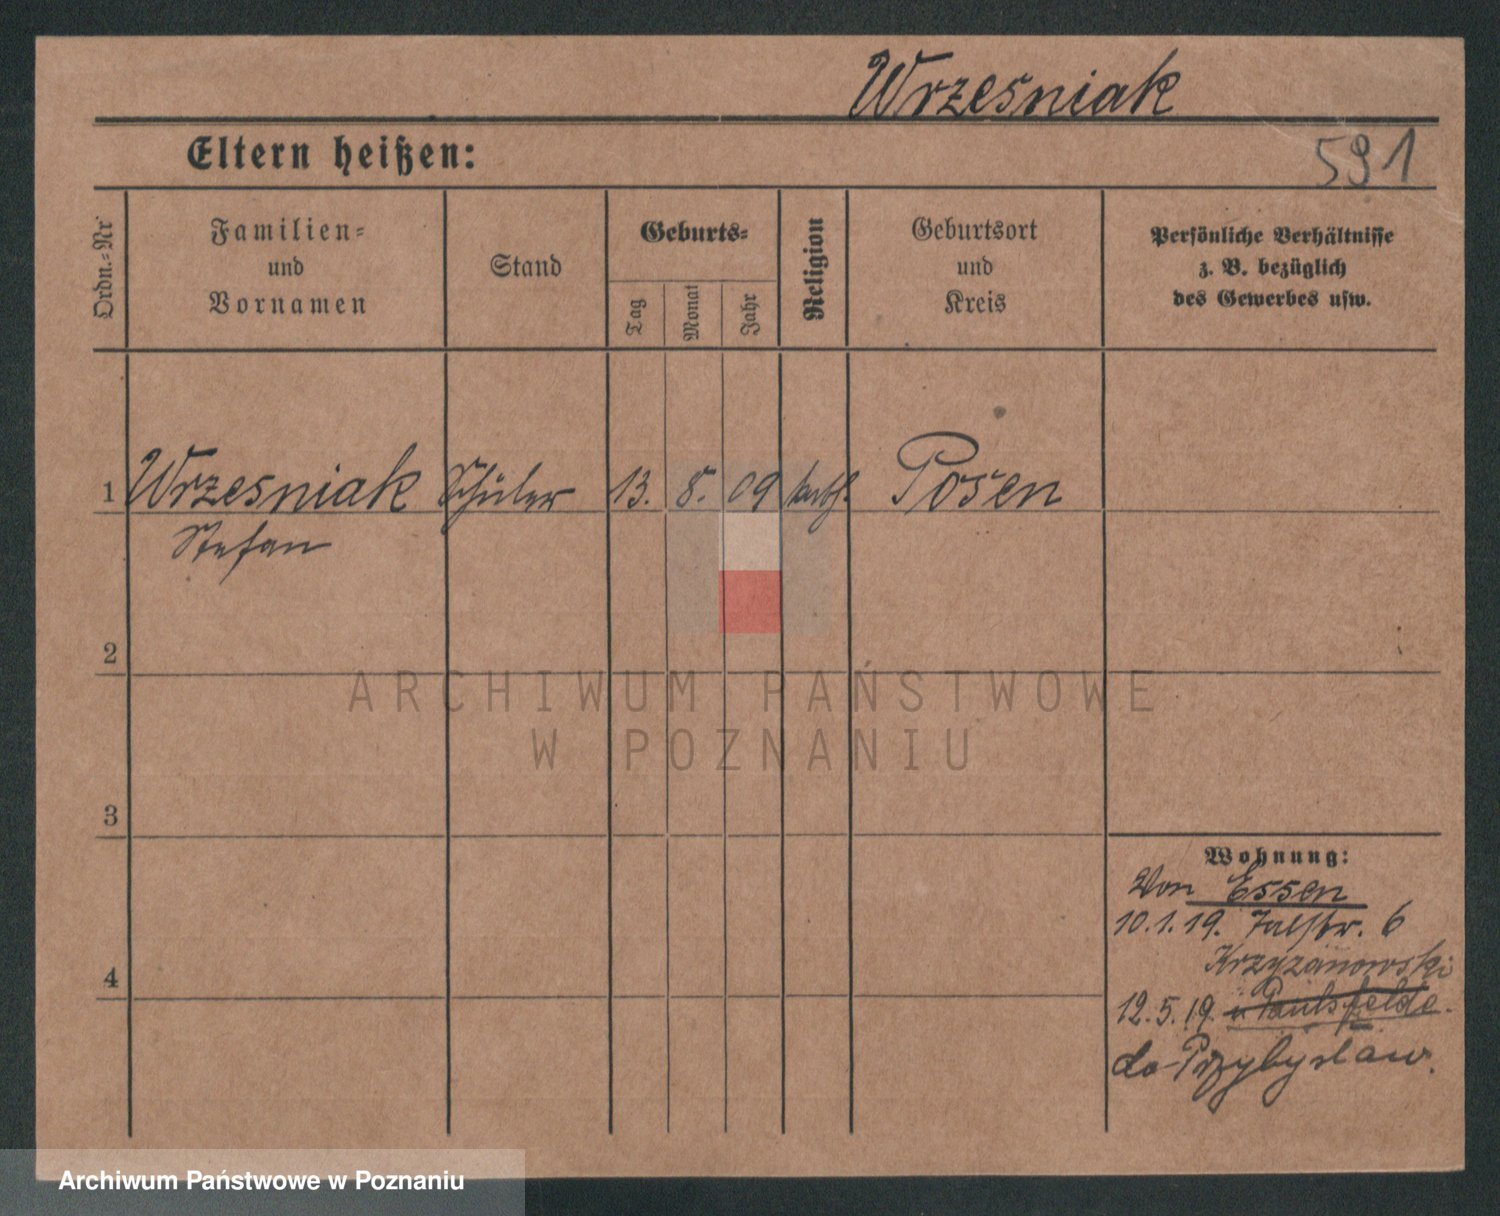 Wrzesniak
Eltern heißen:
591
Ordn.=Nr
Familien=
und
Vornamen
Stand
Geburts=
Tag
Monat
Jahr
Religion
Geburtsort
und
Kreis
Persönliche Verhältnisse
z. B. bezüglich
des Gewerbes usw.
1 Wrzesniak Schüler 13. 8. 09 kath. Posen
Stefan
2
ARCHIWUM PAŃSTWOWE
W POZNANIU
3
Wohnung:
Von Essen
10.1.19. 6
Krzyzanowski
4
12.5.19. Paulsfelde.
do Przybysław.
Archiwum Państwowe w Poznaniu